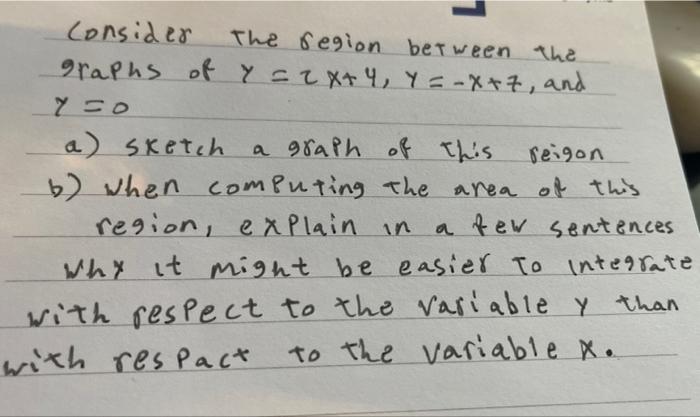 Consider the region between the
graphs of y = 2x+4, y = -x+7, and
y = 0
a) sketch a graph of this reigon
b) when computing the area of this
region, explain in a few sentences
why it might be easier to integrate
with respect to the variable y than
with respact to the variable x.